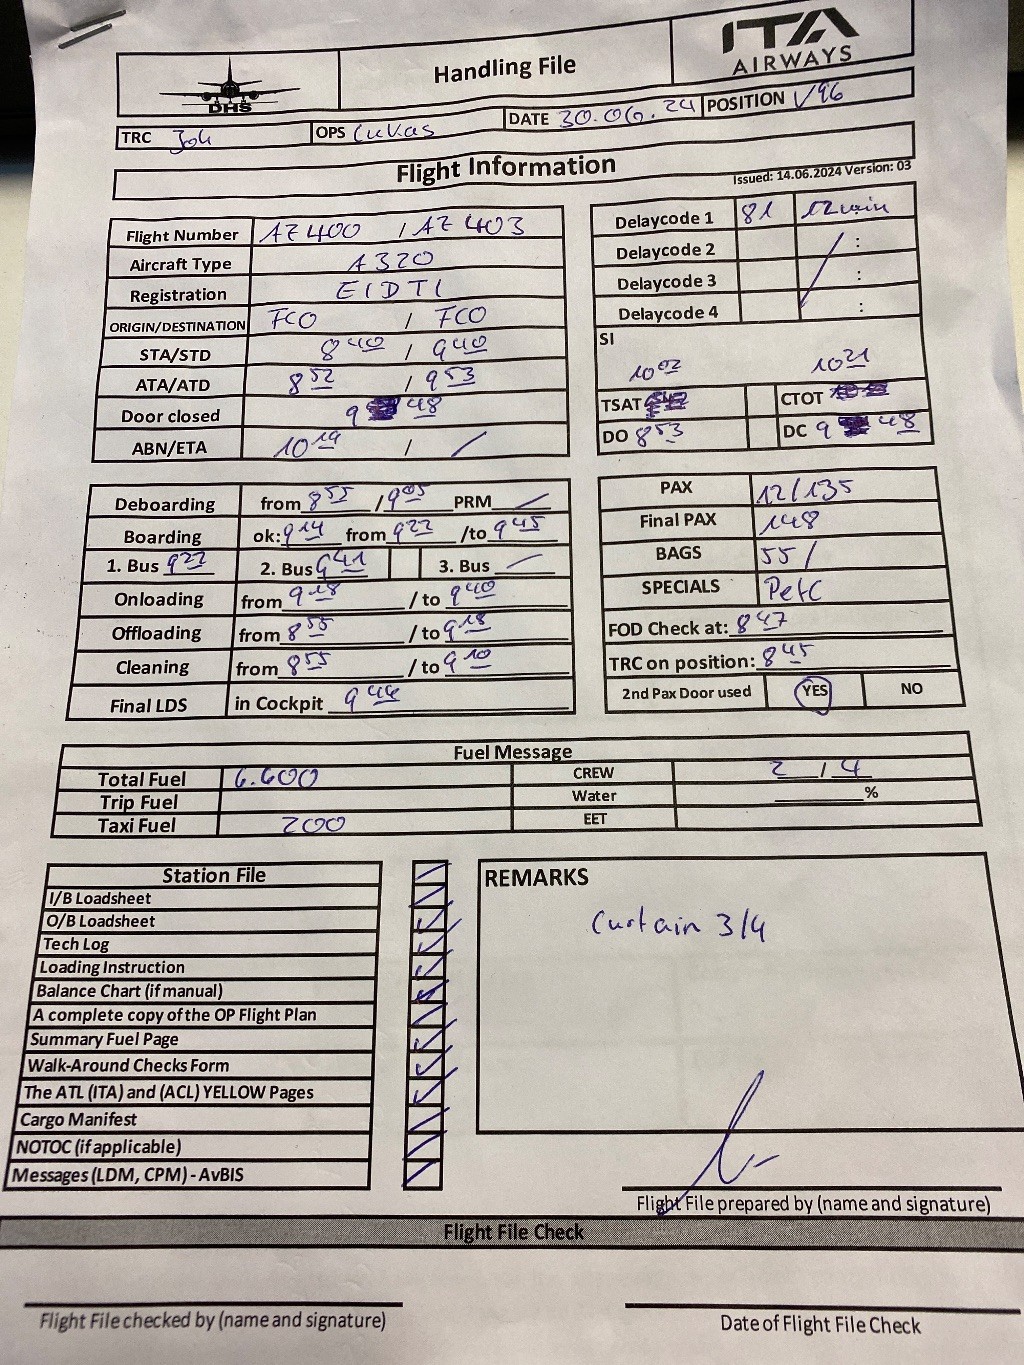 DHS
Handling File
ITA
AIRWAYS
TRC Joh OPS Lukas DATE 30.06.24 POSITION V96
Flight Information
Issued: 14.06.2024 Version: 03
Flight Number AZ400 / AZ403
Aircraft Type A320
Registration EIDTI
ORIGIN/DESTINATION FCO / FCO
STA/STD 8 40 / 9 40
ATA/ATD 8 52 / 9 53
Door closed 9 48
ABN/ETA 10 19 /
Delaycode 1 81 12min
Delaycode 2 :
Delaycode 3 :
Delaycode 4 :
SI
10 02 10 21
TSAT CTOT
DO 8 53 DC 9 48
Deboarding from 8 55 / 9 05 PRM
Boarding ok: 9 14 from 9 22 /to 9 45
1. Bus 9 22 2. Bus 9 41 3. Bus
Onloading from 9 18 / to 9 40
Offloading from 8 55 / to 9 18
Cleaning from 8 55 / to 9 10
Final LDS in Cockpit 9 44
PAX 12/135
Final PAX 148
BAGS 55 /
SPECIALS PetC
FOD Check at: 8 47
TRC on position: 8 45
2nd Pax Door used YES NO
Fuel Message
Total Fuel 6.600 CREW 2 / 4
Trip Fuel Water %
Taxi Fuel 200 EET
Station File
I/B Loadsheet
O/B Loadsheet
Tech Log
Loading Instruction
Balance Chart (if manual)
A complete copy of the OP Flight Plan
Summary Fuel Page
Walk-Around Checks Form
The ATL (ITA) and (ACL) YELLOW Pages
Cargo Manifest
NOTOC (if applicable)
Messages (LDM, CPM) - AvBIS
REMARKS
Curtain 3/4
Flight File prepared by (name and signature)
Flight File Check
Flight File checked by (name and signature)
Date of Flight File Check